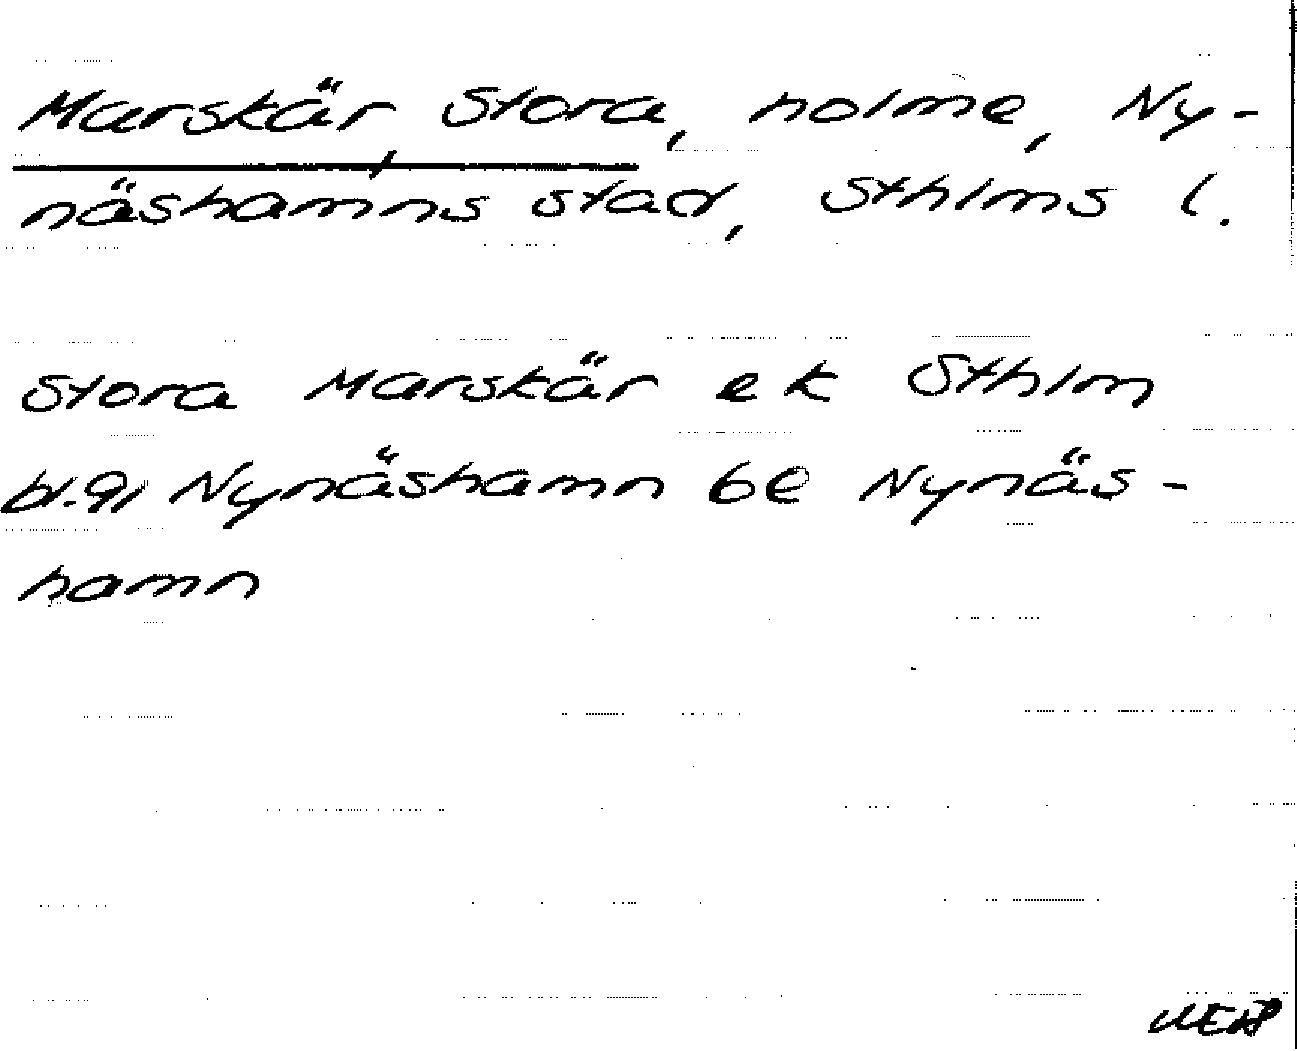 Marskär, Stora, holme, Ny-
näshamns stad, Sthlms l.
Stora Marskär ek Sthlm
bl. 91 Nynäshamn be Nynäs-
hamn